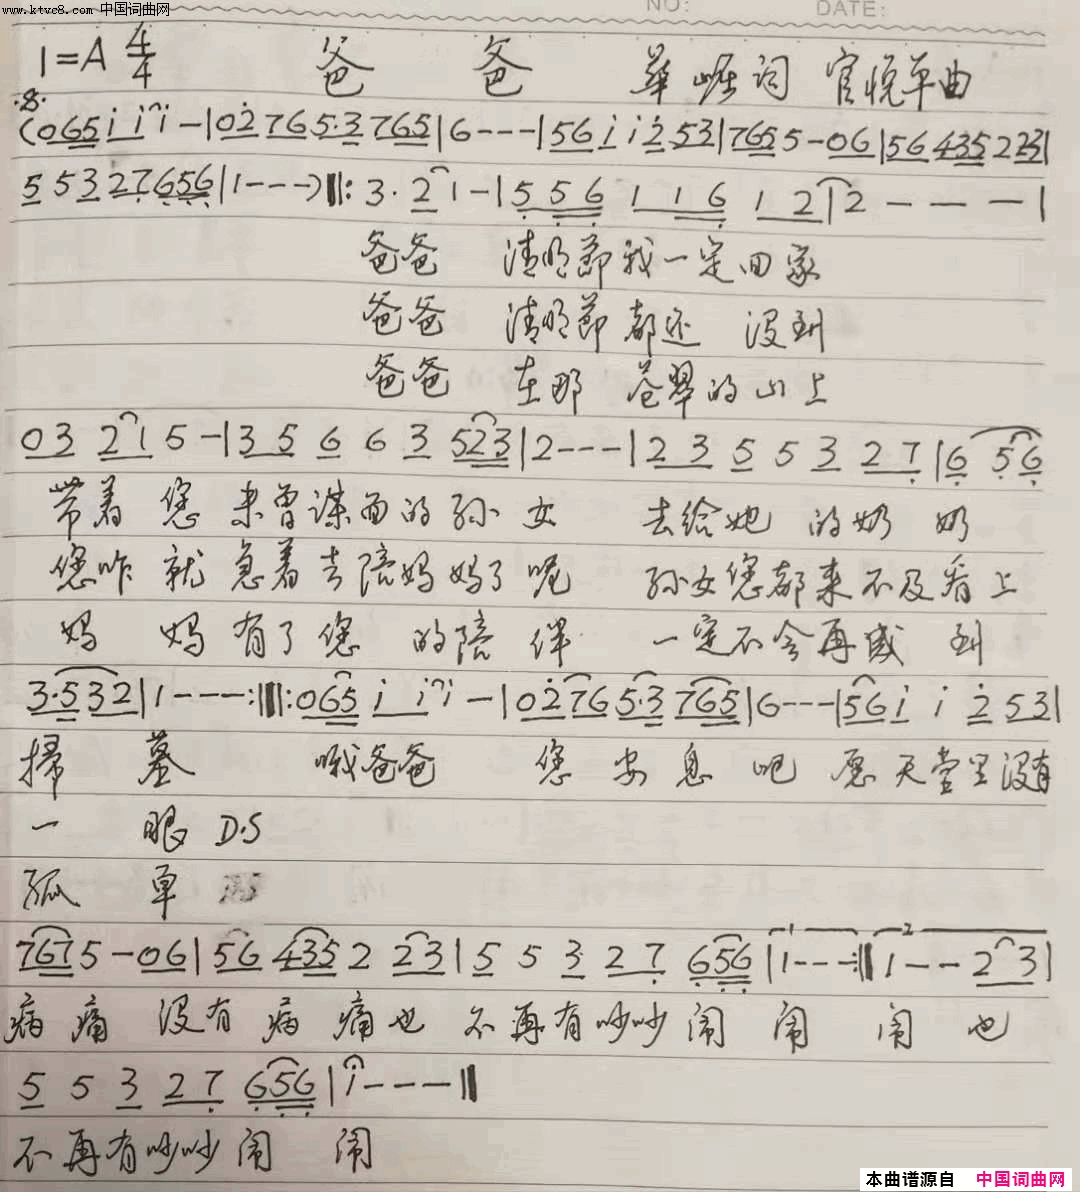 www.ktvc8.com 中国词曲网
NO:
DATE:
1=A 4/4 爸 爸 華崛词 官悦草曲
·8·
(065i i i -|02765·3 765|6---|56i i 2·53|7655-06|56 4352 23|
5 53 27 656|1---)‖: 3· 2 1-|5 5 6 1 1 6 1 2|2 - - -|
爸爸 清明節我一定回家
爸爸 清明節都还 没到
爸爸 在那 苍翠的山上
03 2 1 5 -|3 5 6 6 3 523|2---|2 3 5 5 3 2 7|6 5 6
带着 您 未曾谋面的孙 女 去给她 的奶 奶
您咋 就 急着去陪妈妈了呢 孙女您都来不及看上
妈 妈有了您 的陪 伴 一定不会再感 到
3·532|1---:‖:065 i i i -|0276 5·3 765|6---|56i i 2 53|
掃 墓 哦爸爸 您 安 息 吧 愿天堂里没有
一 眼 D.S
孤 单
7675-06|56 4352 23|5 5 3 2 7 656|1---:‖1-- 2 3|
病 痛 没有 病 痛也 不再有吵吵 闹 闹 闹 也
5 5 3 2 7 656|i---‖
不再有吵吵闹 闹
本曲谱源自 中国词曲网